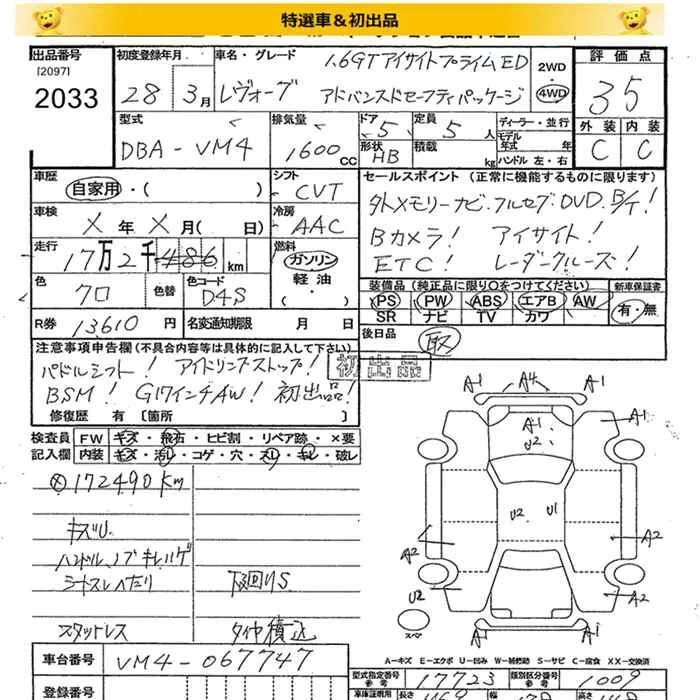 特選車＆初出品
出品番号 [2097] 2033
初度登録年月 28年 3月
車名・グレード 1.6GTアイサイトプライムED
レヴォーグ アドバンスドセーフティパッケージ
2WD 4WD
評価点 35
外装 内装
C C
型式 DBA-VM4
排気量 1600CC
ドア 5 形状 HB
定員 5人 積載 kg
ディーラー・並行
モデル年式 年
ハンドル 左・右
車歴 自家用・( )
シフト CVT
車検 X年X月( 日)
冷房 AAC
走行 17万2千486km
燃料 ガソリン 軽油・
色 クロ 色替
色コード D4S
R券 13610円 名変通知期限 月 日
セールスポイント (正常に機能するものに限ります)
外メモリーナビ.フルセグ.DVD.B/T!
Bカメラ! アイサイト!
ETC! レーダークルーズ!
装備品(純正品に限り○をつけてください) 新車保証書
PS PW ABS エアB AW 有・無
SR ナビ TV カワ
後日品 取
注意事項申告欄(不具合内容等は具体的に記入して下さい)
パドルシフト! アイドリングストップ!
BSM! G17インチAW! 初出品!
初出品
修復歴 有 [箇所
検査員記入欄
FW キズ・飛石・ヒビ割・リペア跡・×要
内装 キズ・汚レ・コゲ・穴・スレ・キレ・破レ
172490km
キズU.
シートスレへたり
下回りS
スタッドレス
タイヤ積込
A1 A4 A1
A1 U2 A1
U2 U1
A2 A2
U2 A2
A1 A1
スペア
A-キズ E-エクボ U-凹み W-補修跡 S-サビ C-腐食 XX-交換済
車台番号 VM4-067747
型式指定番号 参考 17723
類別区分番号 参考 1009
登録番号
車庫証明用 長さ 幅